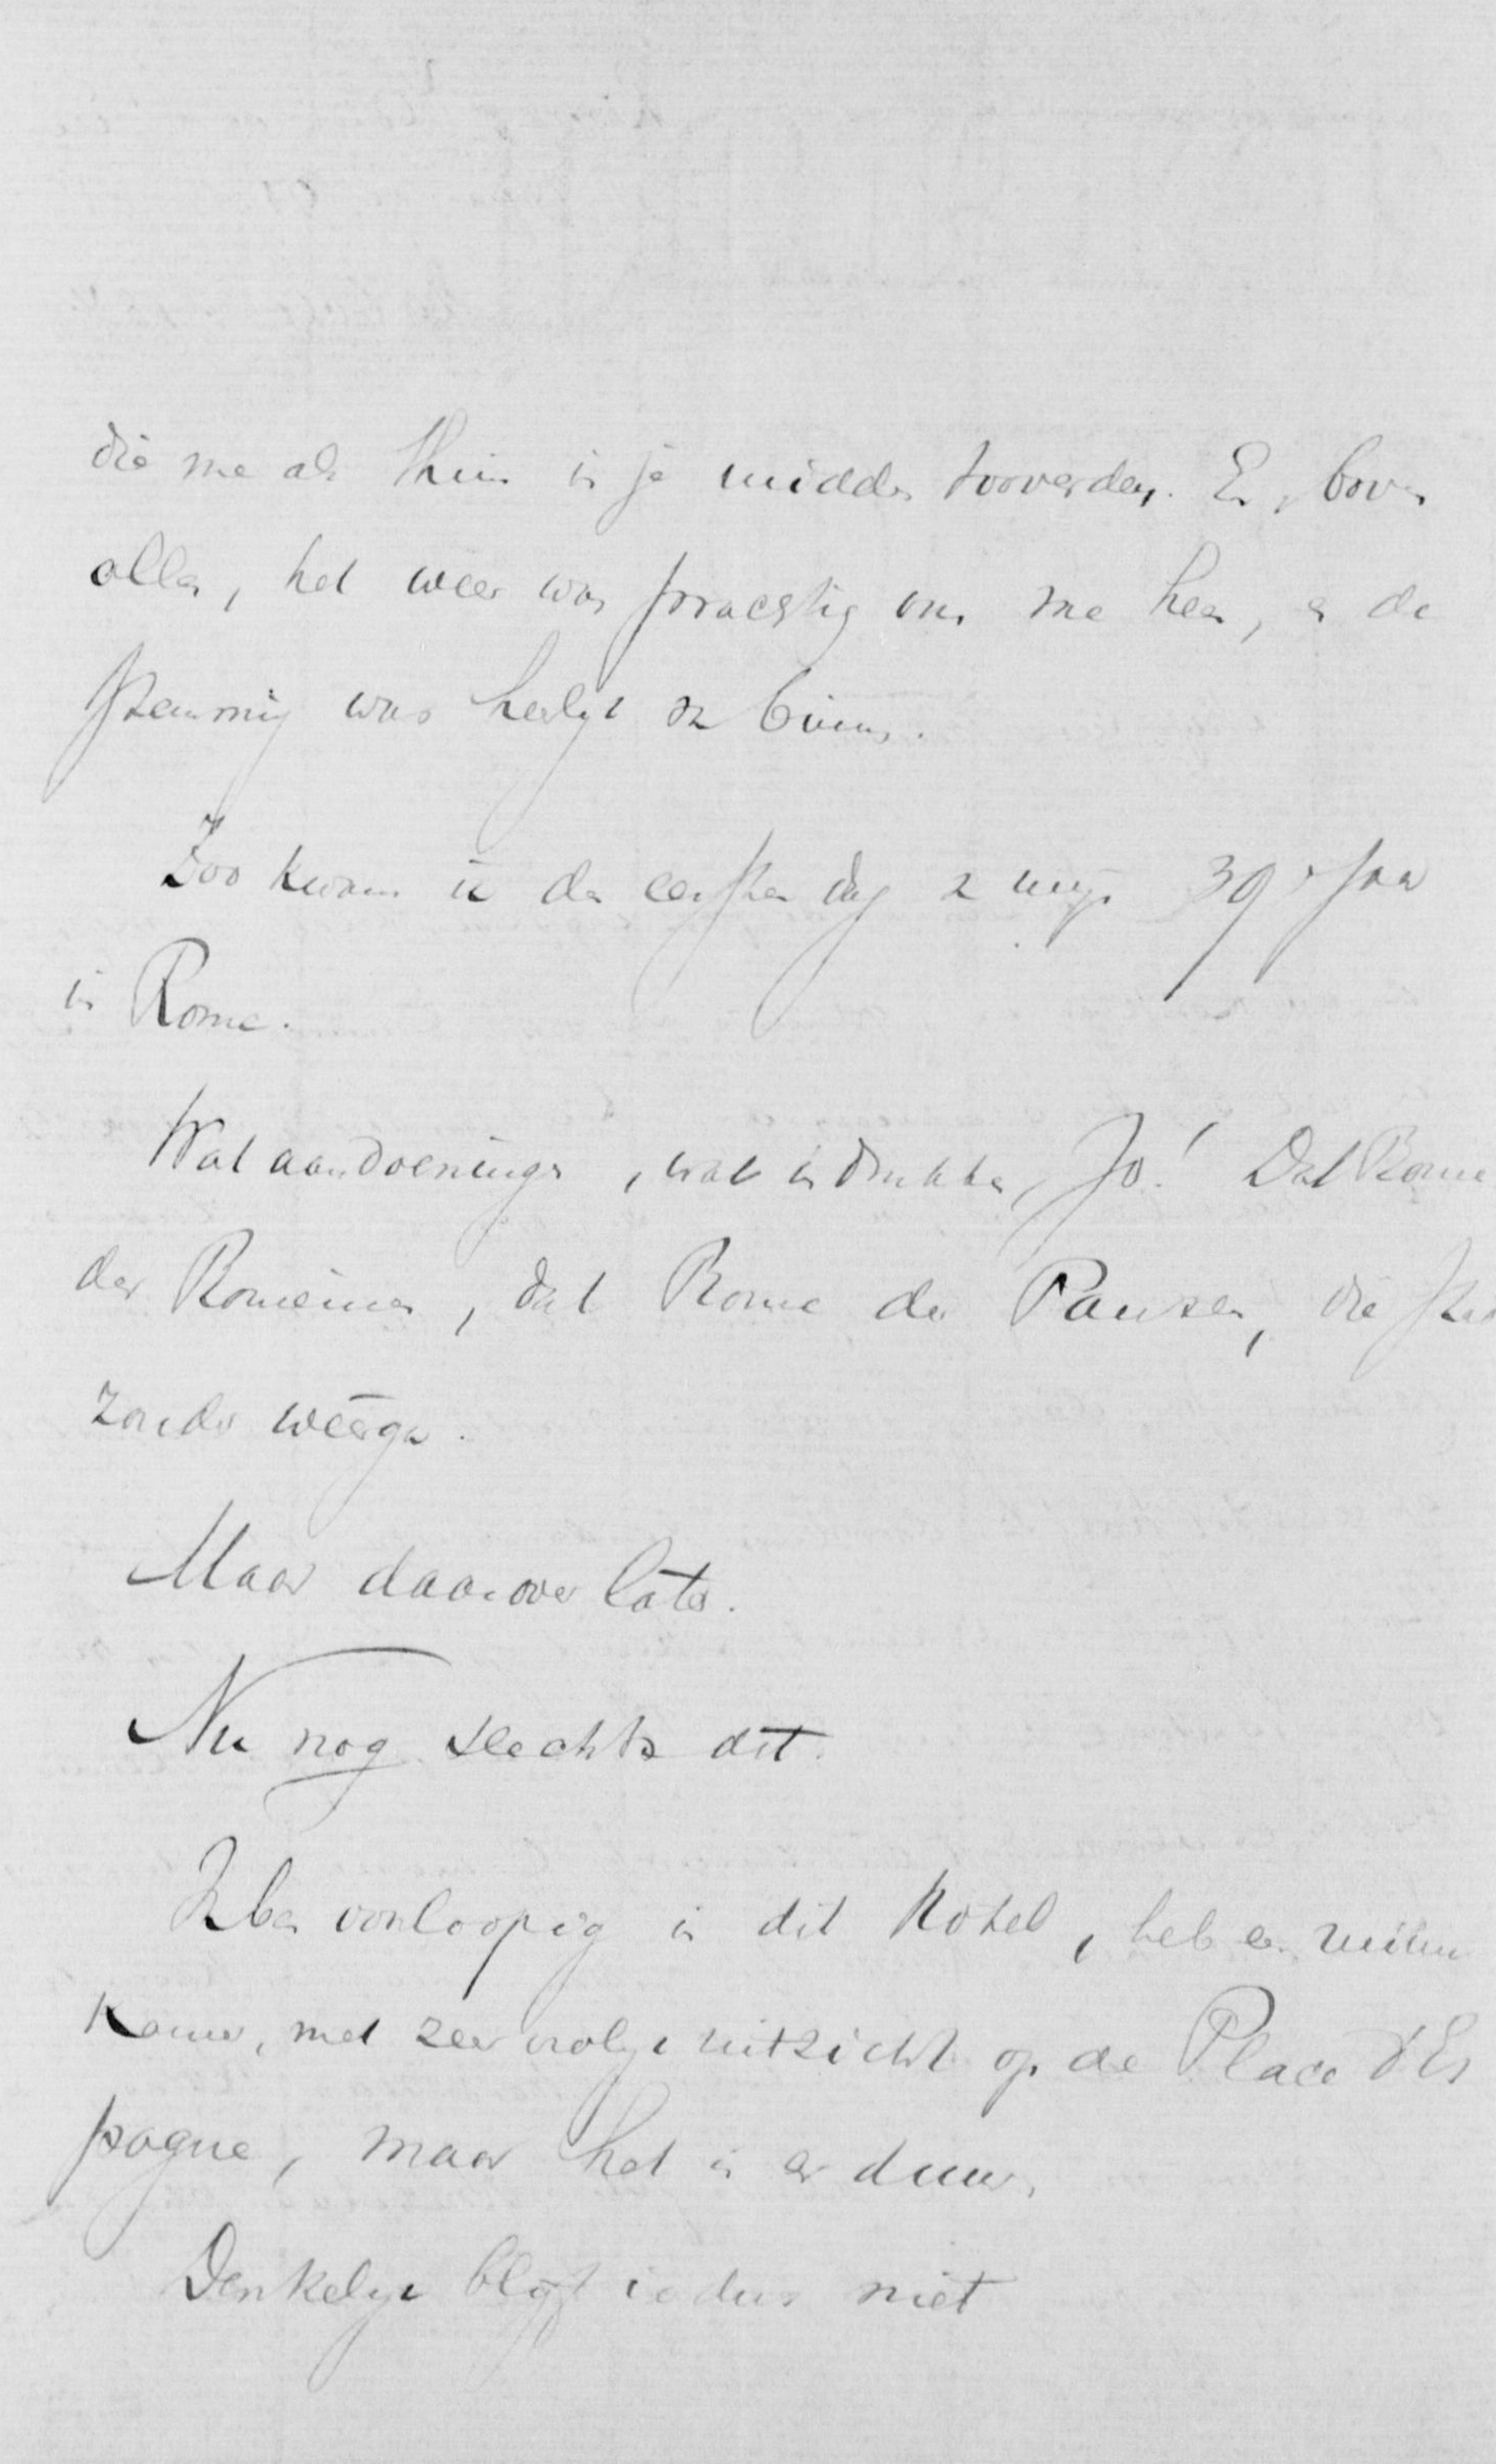 die me als thuis in je midden tooverden. En, boven
alles, het weer was prachtig om me heen, en de
stemming was heerlijk van binnen.
Zoo kwam ik den eersten dag van mijn 39e jaar
in Rome.
Wat aandoeningen, wat indrukken, Jo! Dat Rome
der Romeinen, dat Rome der Pausen, die stad
zonder weerga.
Maar daarover later.
Nu nog slechts dit.
Ik ben voorloopig in dit Hotel, heb een ruime
kamer, met zeer vrolijk uitzicht op de Place d'Es
pagne, maar het is er duur.
Denkelijk blijf ik dus niet